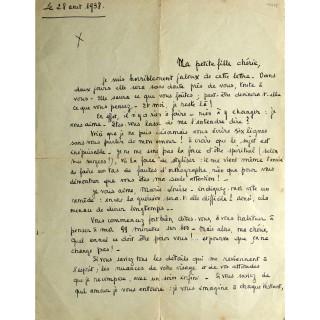 Le 28 août 1938.
Ma petite fille chérie,
je suis horriblement jaloux de cette lettre. Dans
deux jours elle sera sans doute près de vous, toute à
vous. Elle saura ce que vous faites ; peut-être devinera-t-elle
ce que vous pensez. Et moi, je reste là !
En effet, il n'y a rien à faire - rien à y changer : je
vous aime. Êtes-vous lasse de me l'entendre dire ?
Voilà que je ne puis désormais vous écrire six lignes
sans vous parler de mon amour ! à croire que le sujet est
inépuisable. Je ne me sens pas la force d'être spirituel
vu la façon de styliser : il me vient même l'envie
de faire un tas de fautes d'orthographe rien que pour vous
démontrer que vous êtes ma seule attention !
Je vous aime, Marie indiquez-moi vite un
remède : envie la guérison sera-t-elle difficile ? Ainsi, cela
menace de durer longtemps.
Vous commencez fort bien, dites-vous, à vous habituer à
penser à moi 99 minutes sur 100. Mais alors, ma chérie,
quel ennui ce doit être pour vous ! et pourvu que ça ne
change pas !
Si vous saviez tous les détails qui me reviennent à
l'esprit, les nuances de votre visage et de vos attitudes
que je recompose avec un soin Si vous saviez de
quel amour je vous entoure : je vous imagine à chaque instant,